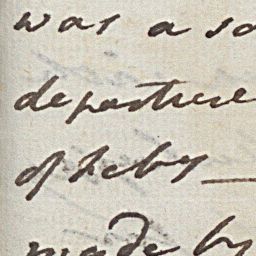 was a so
departure
of Feby —
made by